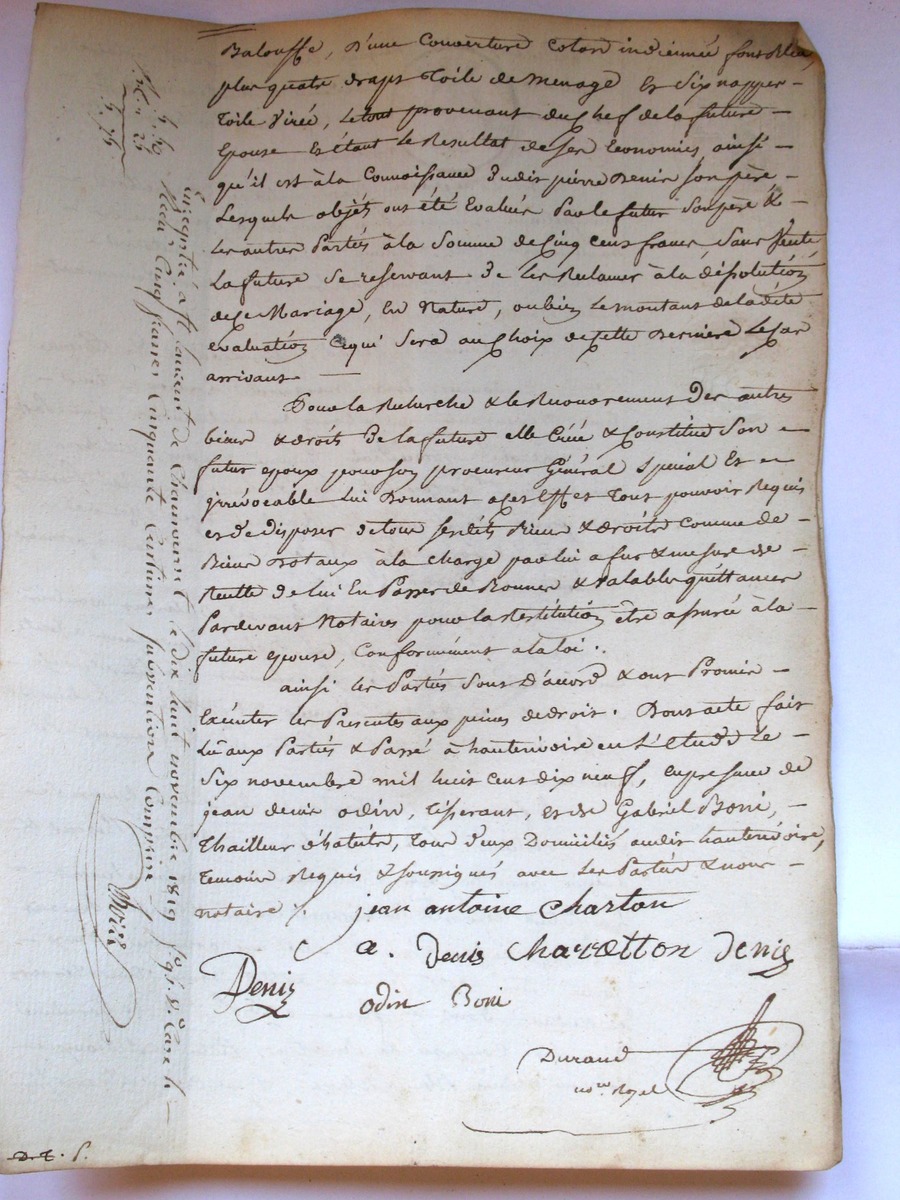 Balouffe, d'une Couverture coton indiennée fond bleu,
plus quatre draps toile de menage Et Six nappes
toile virée, le tout provenant du chef de la future
Epouse Et étant le Resultat de ses Economies ainsi
qu'il est à la Connoissance dudit pierre Denis son père
Lesquels objéts ont été Evalués Par le futur Son père &
les autres Partiés à la Somme de Cinq cens francs Sans Vente
La future Se reservant de les Reclamer à la dissolution
de ce Mariage, En Nature, ou bien le montant de la dite
evaluation Ce qui Sera au choix de cette Derniere le cas
arrivant
Pour la Recherche & le Recouvrement des autres
biens & droits de la future elle Créé & Constitue Son
futur epoux pour son procureur Général spécial Et
irrévocable Lui Donnant a ces Effets Tout pouvoir Requis
et de disposer de tous ses dits Biens & droits Comme de
Biens dotaux à la charge par lui a fur & mesure de
Recette de lui En Passer de Bonnes & Valables quittances
Pardevant Notaires pour la Restitution être assurée à la
future epouse, Conformement a la loi.
ainsi les Partiés Sont D'accord & ont Promis
Exécuter les Presentes aux peines de droit. Dont acte fait
Lu aux Partiés & Passé à hauterivoire en L'etude Le
Six novembre mil huit cent dix neuf, en presence de
jean denis odin, tisserant, et de Gabriel Boni,
Thailleur d'habits, tous deux Domiciliés audit hauterivoire,
Temoins Requis & soussignés avec les Partiés & nous
notaire
jean antoine Charton
a. denis Charetton denis
Denis
odin Boni
Durand
no.re Royal
Enregistré à St laurent de Chamousset le dix huit novembre 1819
Recu Cinq francs Cinquante Centimes subvention Comprise
D. E. S.